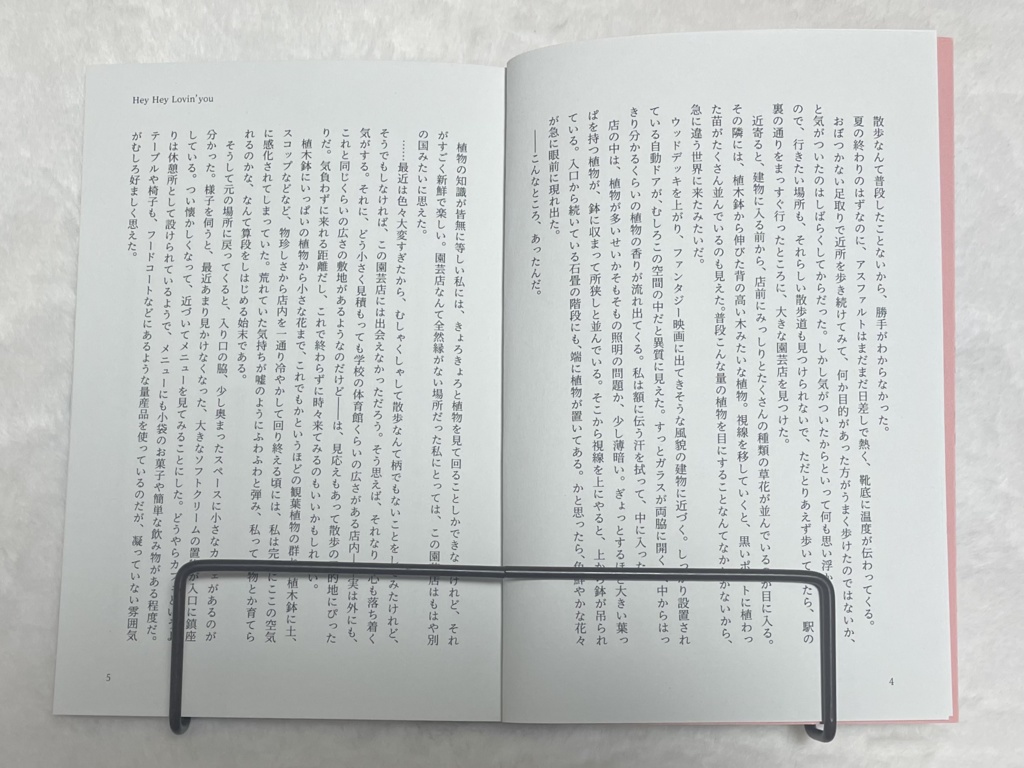 散歩なんて普段したことないから、勝手がわからなかった。
夏の終わりのはずなのに、アスファルトはまだまだ日差しで熱く、靴底に温度が伝わってくる。
おぼつかない足取りで近所を歩き続けてみて、何か目的があった方がうまく歩けたのではないか、
と気がついたのはしばらくしてからだった。しかし気がついたからといって何も思い浮か
ので、行きたい場所も、それらしい散歩道も見つけられないで、ただとりあえず歩いて たら、駅の
裏の通りをまっすぐ行ったところに、大きな園芸店を見つけた。
近寄ると、建物に入る前から、店前にみっしりとたくさんの種類の草花が並んでいる が目に入る。
その隣には、植木鉢から伸びた背の高い木みたいな植物。視線を移していくと、黒いポ トに植わっ
た苗がたくさん並んでいるのも見えた。普段こんな量の植物を目にすることなんてなか か ないから、
急に違う世界に来たみたいだ。
ウッドデッキを上がり、ファンタジー映画に出てきそうな風貌の建物に近づく。し かり設置され
ている自動ドアが、むしろこの空間の中だと異質に見えた。すっとガラスが両脇に開く 中からはっ
きり分かるくらいの植物の香りが流れ出てくる。私は額に伝う汗を拭って、中に入った
店の中は、植物が多いせいかそもそもの照明の問題か、少し薄暗い。ぎょっとするほ 大きい葉っ
ぱを持つ植物が、鉢に収まって所狭しと並んでいる。そこから視線を上にやると、上か 鉢が吊られ
ている。入口から続いている石畳の階段にも、端に植物が置いてある。かと思ったら、 鮮やかな花々
が急に眼前に現れ出た。
――こんなところ、あったんだ。
4
Hey Hey Lovin'you
植物の知識が皆無に等しい私には、きょろきょろと植物を見て回ることしかできな けれど、それ
がすごく新鮮で楽しい。園芸店なんて全然縁がない場所だった私にとっては、この園 店はもはや別
の国みたいに思えた。
……最近は色々大変すぎたから、むしゃくしゃして散歩なんて柄でもないことをし みたけれど、
そうでもしなければ、この園芸店には出会えなかっただろう。そう思えば、それなり 心も落ち着く
気がする。それに、どう小さく見積もっても学校の体育館くらいの広さがある店内― 実は外にも、
これと同じくらいの広さの敷地があるようなのだけど――は、見応えもあって散歩の 的地にぴった
りだ。気負わずに来れる距離だし、これで終わらずに時々来てみるのもいいかもしれ い。
植木鉢にいっぱいの植物から小さな花まで、これでもかというほどの観葉植物の群 植木鉢に土、
スコップなどなど、物珍しさから店内を一通り冷やかして回り終える頃には、私は完 にここの空気
に感化されてしまっていた。荒れていた気持ちが嘘のようにふわふわと弾み、私って 物とか育てら
れるのかな、なんて算段をしはじめる始末である。
そうして元の場所に戻ってくると、入り口の脇、少し奥まったスペースに小さなカ ェがあるのが
分かった。様子を伺うと、最近あまり見かけなくなった、大きなソフトクリームの置 が入口に鎮座
している。つい懐かしくなって、近づいてメニューを見てみることにした。どうやらカ
りは休憩所として設けられているようで、メニューにも小袋のお菓子や簡単な飲み物がある程度だ。
テーブルや椅子も、フードコートなどにあるような量産品を使っているのだが、凝っていない雰囲気
がむしろ好ましく思えた。
5